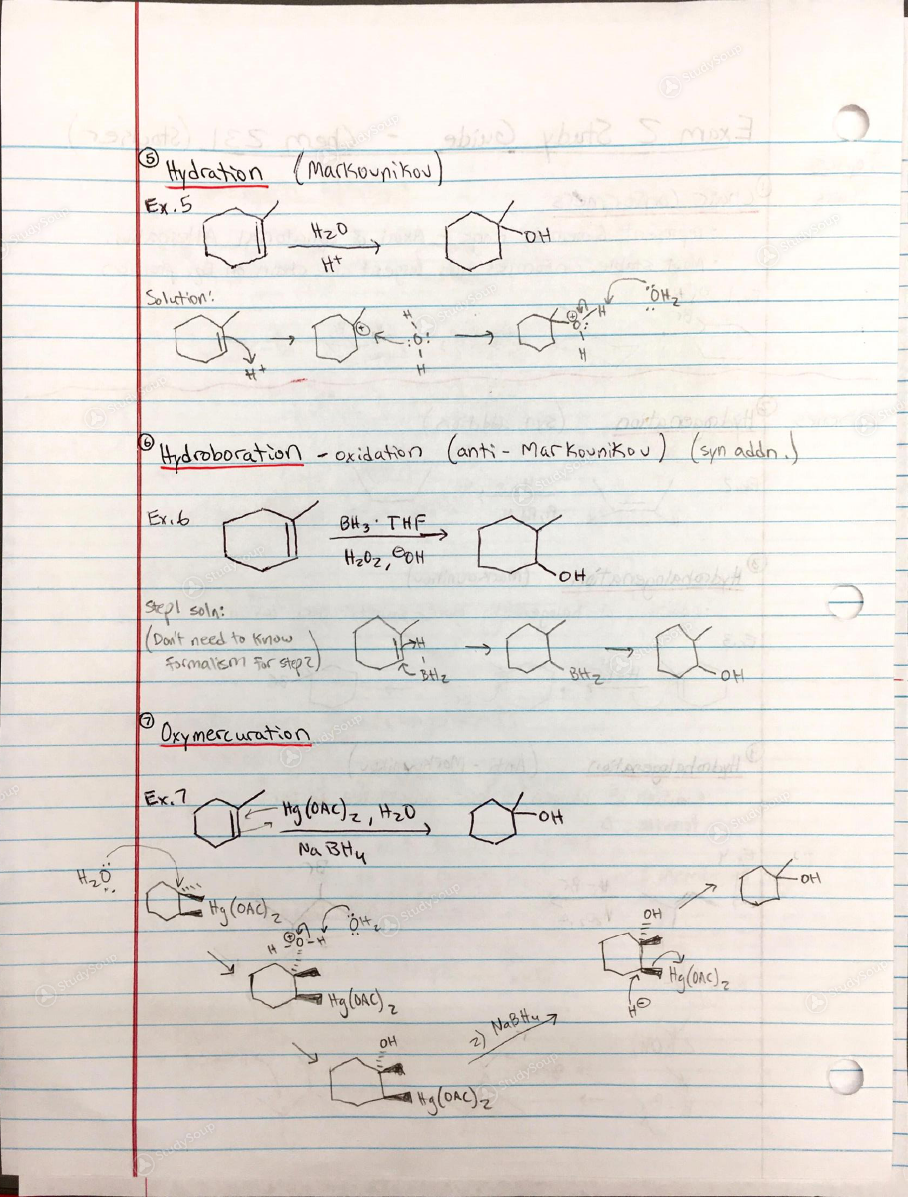 ⑤ Hydration (Markovnikov)
Ex. 5
H2O
H+
OH
Solution:
H+
⊕
H
:O:
H
⊕
O:
H
H
:ÖH2
⑥ Hydroboration - oxidation (anti-Markovnikov) (syn addn.)
Ex. 6
BH3 · THF
H2O2, ⊖OH
OH
Step 1 soln:
(Don't need to know
formalism for step 2)
H
BH2
BH2
OH
⑦ Oxymercuration
Ex. 7
Hg(OAc)2, H2O
NaBH4
OH
H2O
Hg(OAc)2
OH
H ⊕O-H
ÖH2
Hg(OAc)2
OH
Hg(OAc)2
H⊖
2) NaBH4
OH
Hg(OAc)2
StudySoup